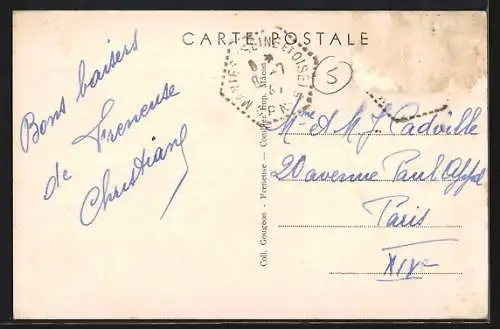 CARTE POSTALE
Bons baisers
de Freneuse
Christiane
SEINE ET OISE
5
Coll. Gougeon - Freneuse - Combier Imp. Mâcon
Mme et M J Cadville
20 avenue Paul App
Paris
XIVe